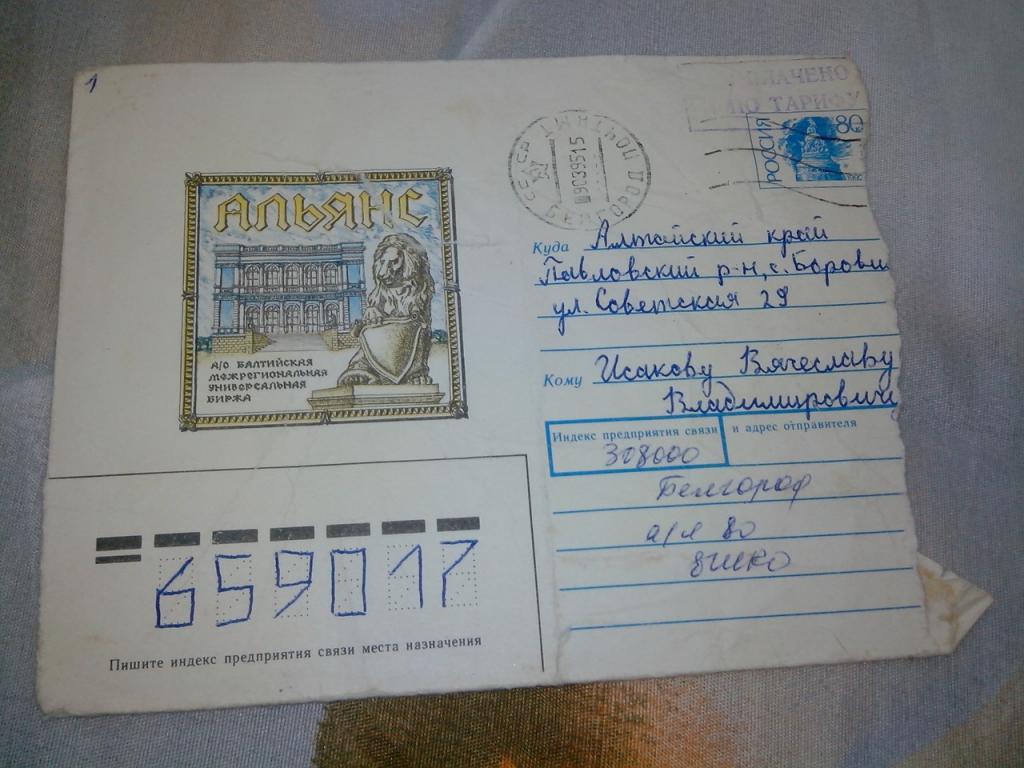 1
ПЛАЧЕНО
ПО ТАРИФУ
РОССИЯ
80
1992
БЕЛГОРОД ПОЧТАМТ
09039515
АЛЬЯНС
А/О БАЛТИЙСКАЯ
МЕЖРЕГИОНАЛЬНАЯ
УНИВЕРСАЛЬНАЯ
БИРЖА
Куда Алтайский край
Павловский р-н, с. Боровик
ул. Советская 29
Кому Исакову Вячеславу
Владимирович
Индекс предприятия связи и адрес отправителя
308000
Белгород
а/я 80
659017
Пишите индекс предприятия связи места назначения